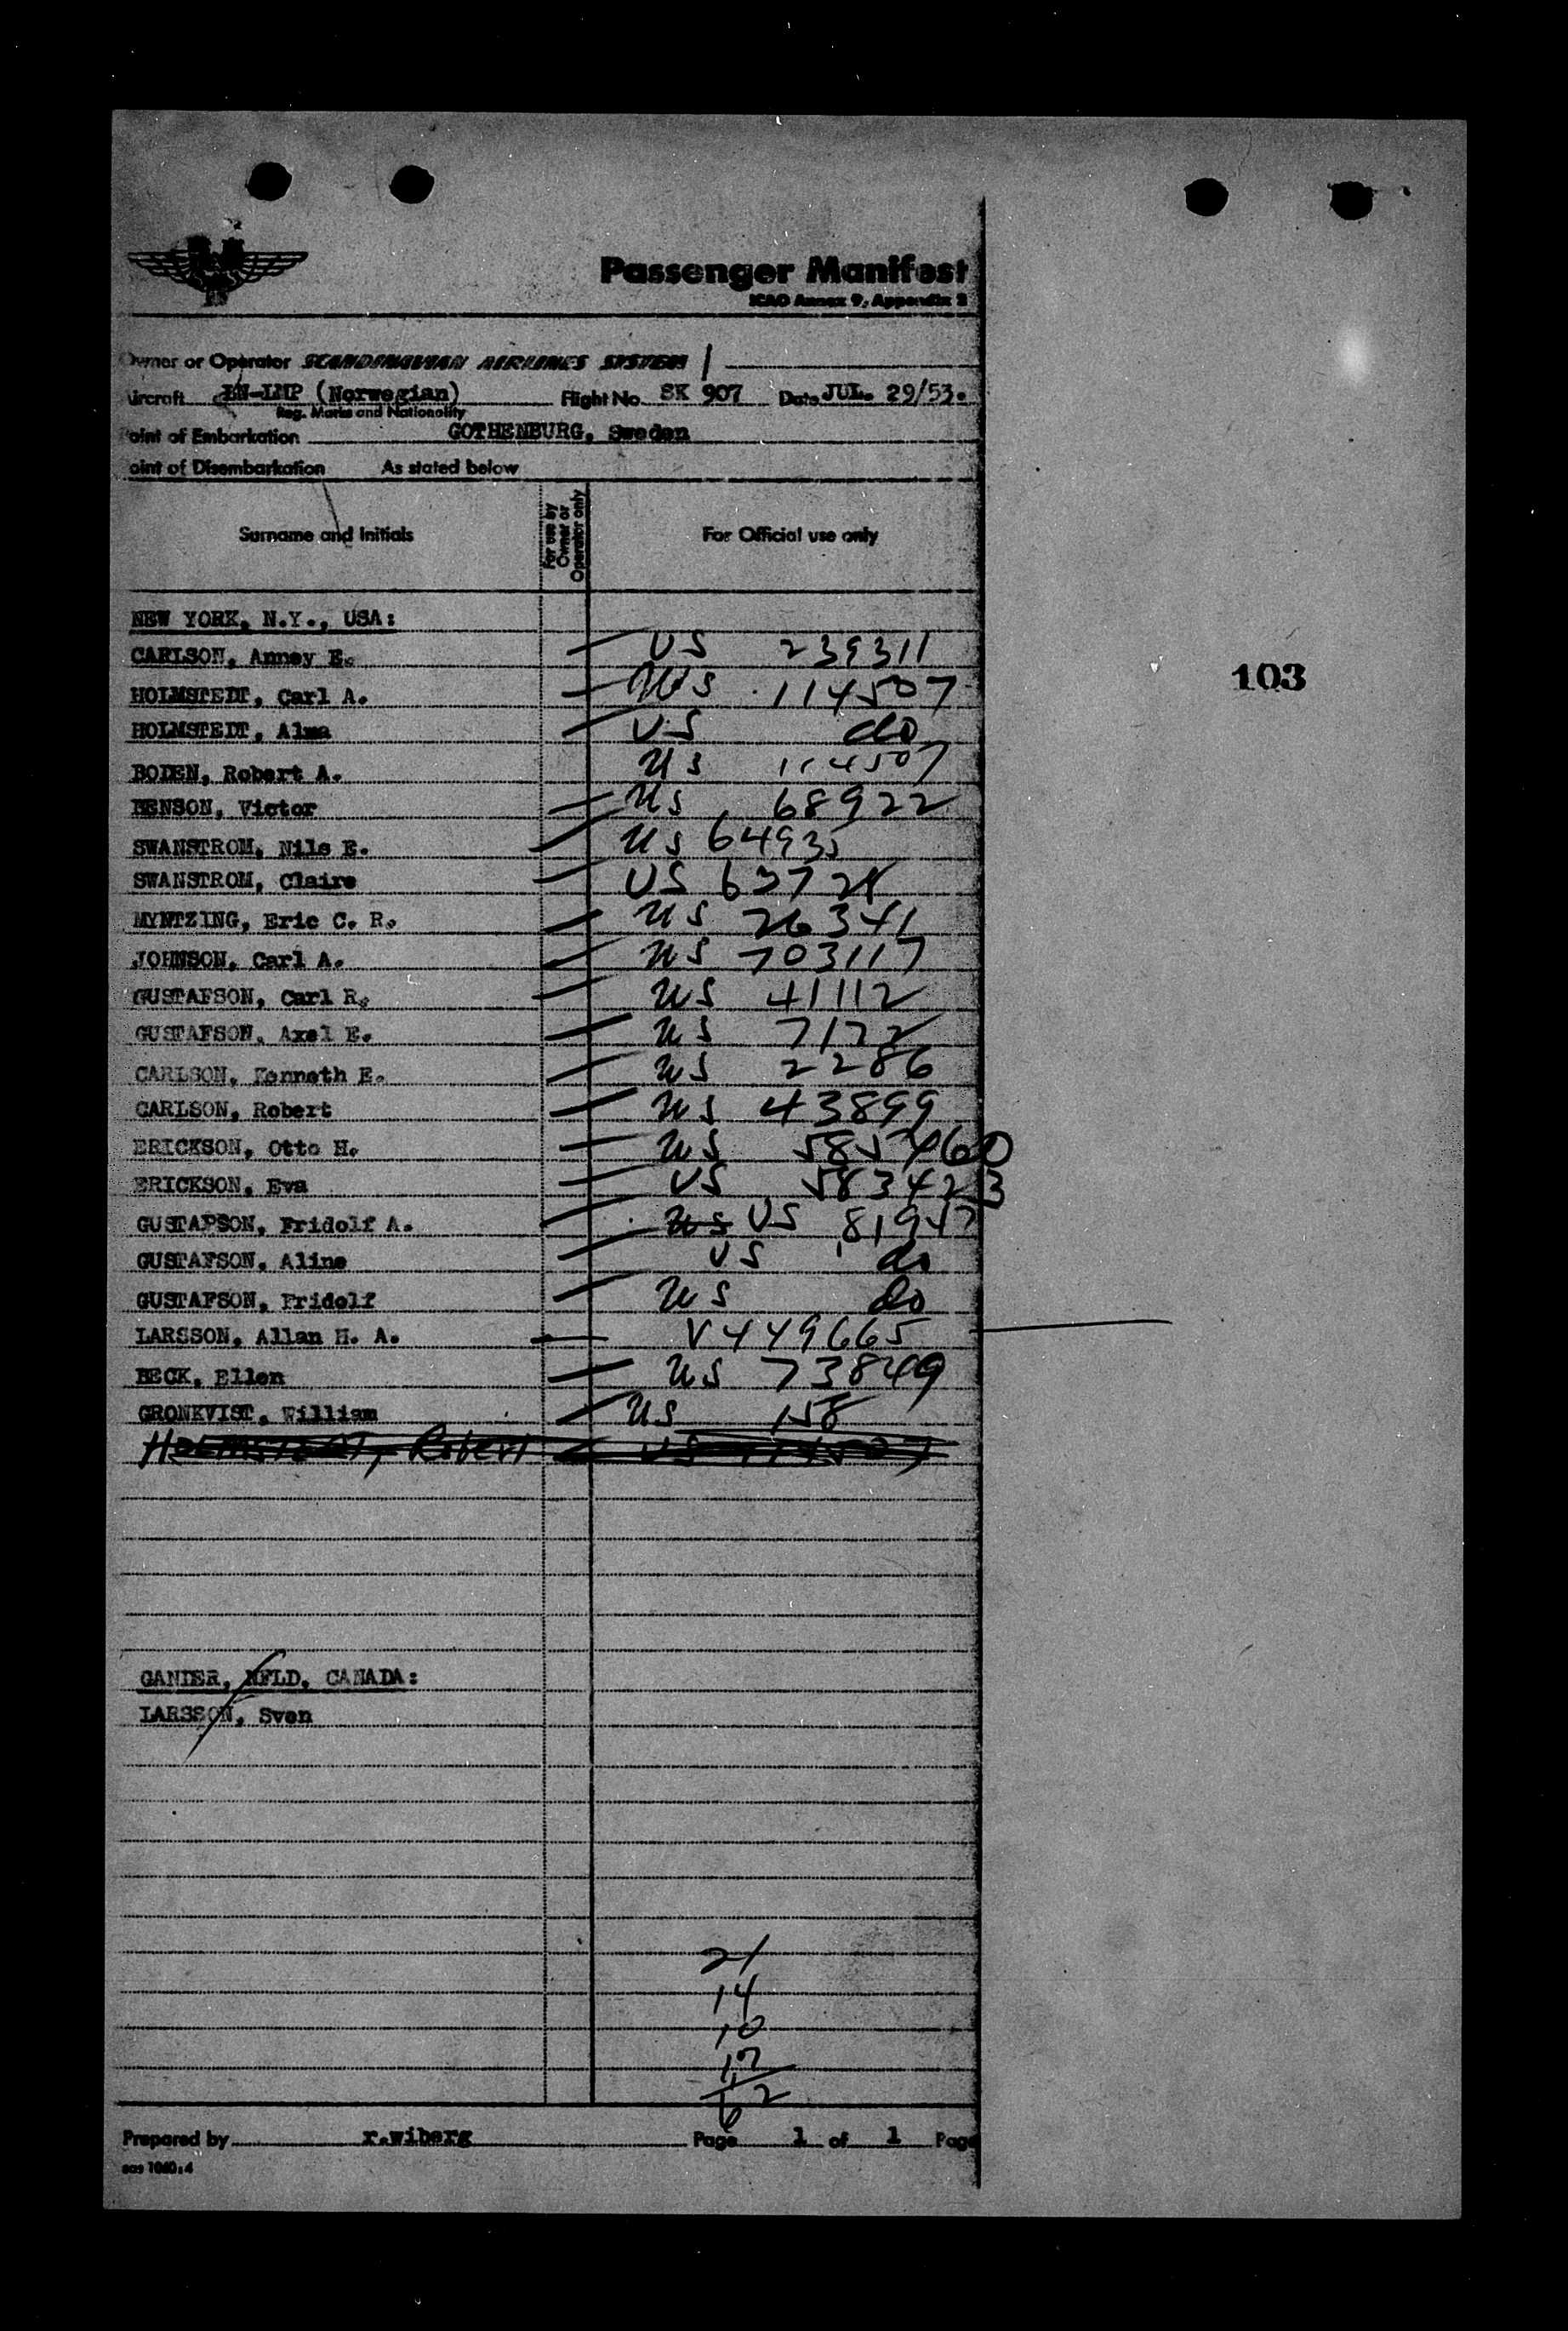 Passenger Manifest
ICAO Annex 9, Appendix 2
Owner or Operator SCANDINAVIAN AIRLINES SYSTEM
Aircraft LN-LMP (Norwegian) Flight No. SK 907 Date JUL. 29/53.
Reg. Marks and Nationality
Point of Embarkation GOTHENBURG, Sweden
Point of Disembarkation As stated below
Surname and Initials For use by Owner or Operator only For Official use only
NEW YORK, N.Y., USA:
CARLSON, Anney E. US 239311
HOLMSTEDT, Carl A. US 114507
HOLMSTEDT, Alma US do
BODEN, Robert A. US 114507
BENSON, Victor US 68922
SWANSTROM, Nils E. US 64935
SWANSTROM, Claire US 63724
MYNTZING, Eric C. R. US 26341
JOHNSON, Carl A. US 703117
GUSTAFSON, Carl R. US 41112
GUSTAFSON, Axel E. US 7172
CARLSON, Kenneth E. US 2286
CARLSON, Robert US 43899
ERICKSON, Otto H. US 585460
ERICKSON, Eva US 583423
GUSTAPSON, Fridolf A. US US 81947
GUSTAFSON, Aline US do
GUSTAFSON, Fridolf US do
LARSSON, Allan H. A. V449665
BECK, Ellen US 73849
GRONKVIST, William US 158
HOLMSTEDT, Robert US 114507
103
GANDER, NFLD, CANADA:
LARSSON, Sven
21
14
10
17
62
Prepared by r.wiberg Page 1 of 1 Page
sas 1060:4